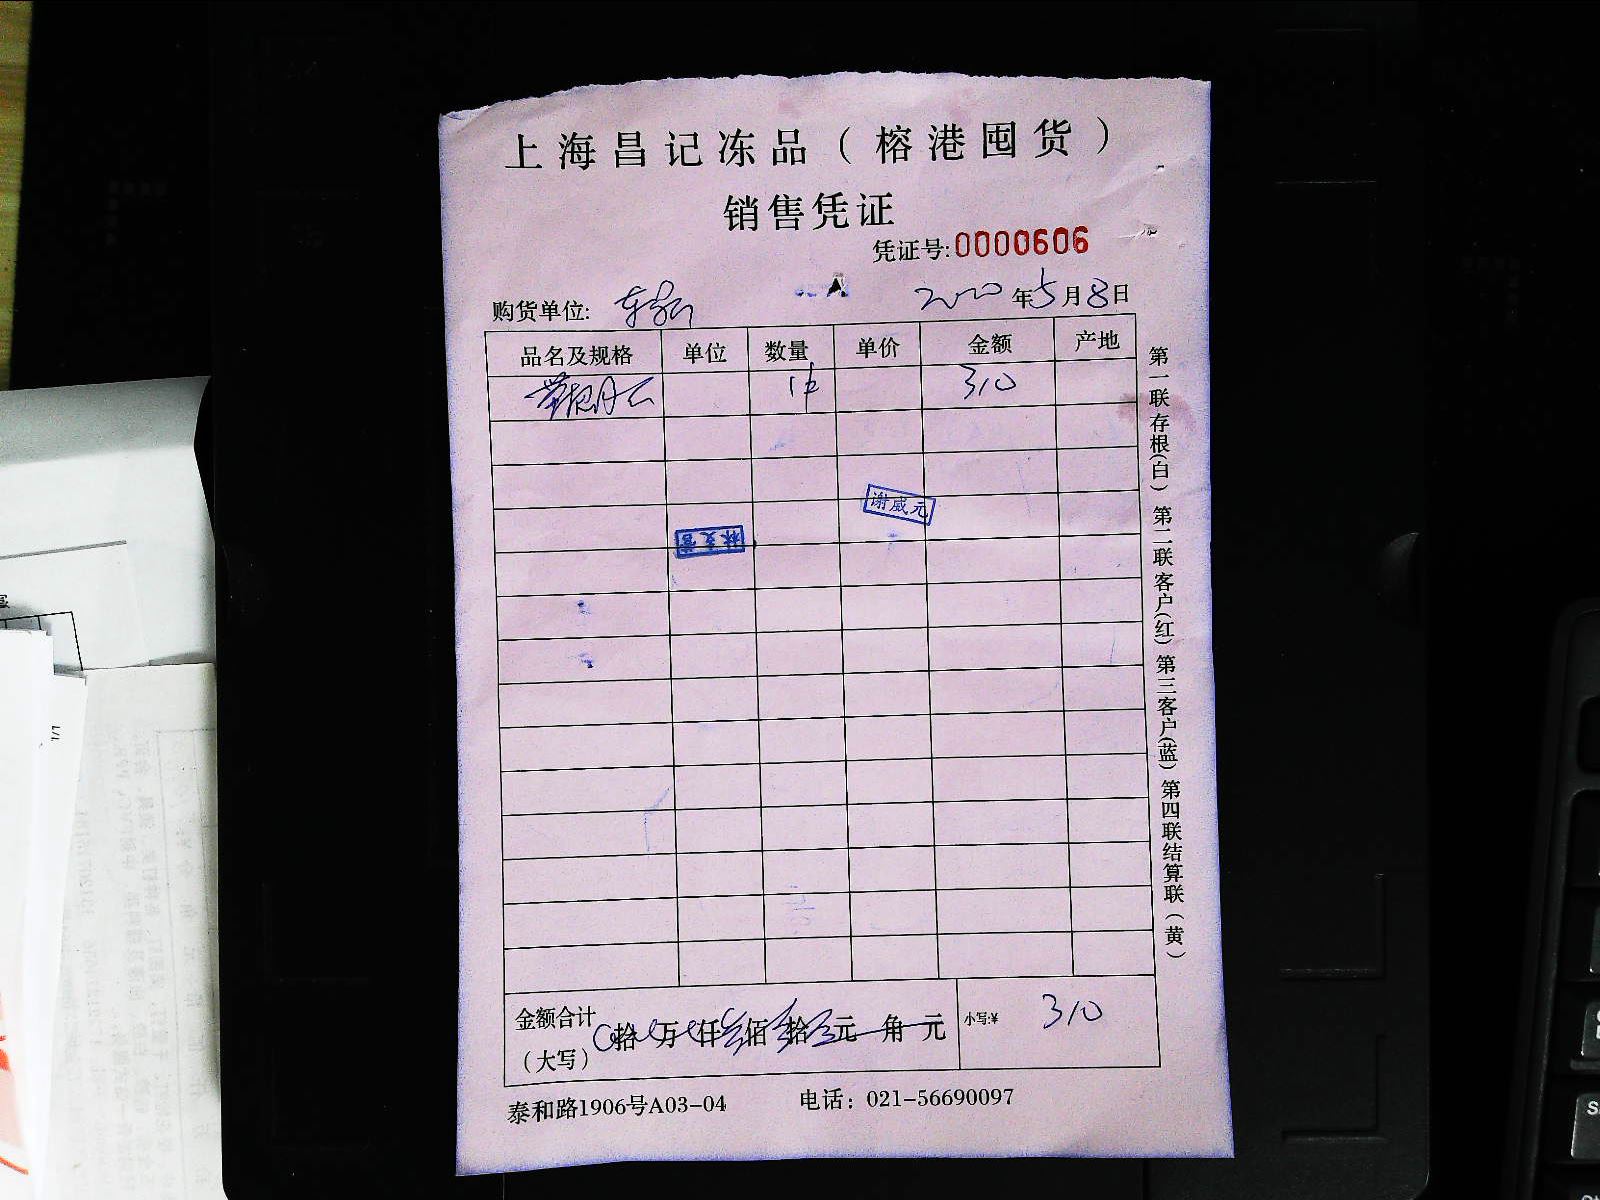 上海昌记冻品（榕港囤货）
销售凭证
凭证号:0000606
购货单位: 2020年5月8日
品名及规格 单位 数量 单价 金额 产地
1件 310
谢威元
林支営
金额合计 拾 万 仟 佰 拾 元 角 元 小写:¥ 310
（大写）
泰和路1906号A03-04 电话：021-56690097
第一联存根(白) 第二联客户(红) 第三客户(蓝) 第四联结算联（黄）